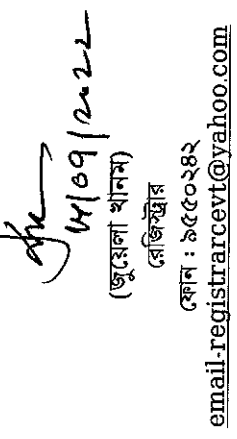 (জুয়েলা খানম)
রেজিস্ট্রার
ফোন : ৯৫৫০২৪২
email-registrarcevt@yahoo.com